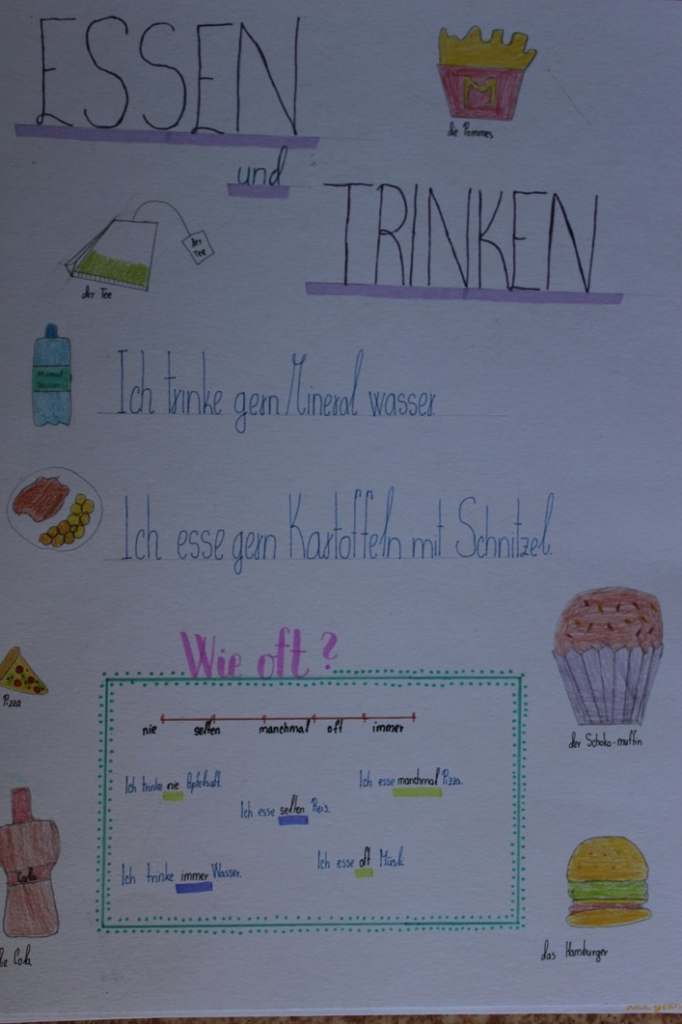 ESSEN
M
die Pommes
und
TRINKEN
der
Tee
der Tee
Mineral
Wasser
Ich trinke gern Mineral wasser
Ich esse gern Kartoffeln mit Schnitzel.
Wie oft?
Pizza
nie selten manchmal oft immer
der Schoko-muffin
Ich trinke nie Apfelsaft.
Ich esse manchmal Pizza.
Ich esse selten Reis.
Ich trinke immer Wasser.
Ich esse oft Müsli
Cola
die Cola
das Hamburger